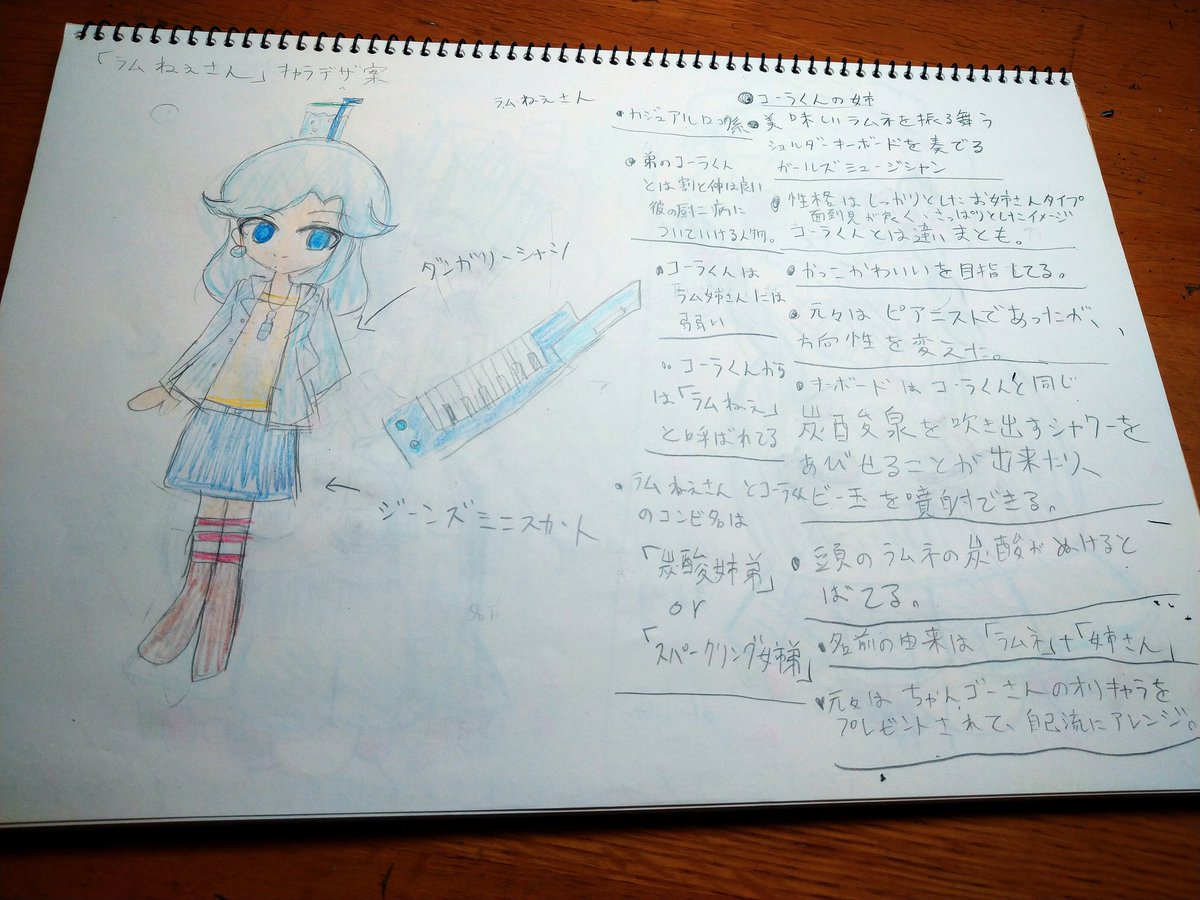 「ラムねぇさん」キャラデザ案
ダンガリーシャツ
ジーンズミニスカート
ラムねえさん
・カジュアルロコ系
・弟のコーラくん
とは割と仲は良い
彼の厨二病に
ついていける人物。
・コーラくんは
ラム姉さんには
弱い
コーラくんから
は「ラムねぇ」
と呼ばれてる
・ラムねえさんとコーラくん
のコンビ名は
「炭酸姉弟」
or
「スパークリング姉弟」
コーラくんの姉
美味しいラムネを振る舞う
ショルダーキーボードを奏でる
ガールズミュージシャン
性格はしっかりとしたお姉さんタイプ
面倒見が良く、さっぱりとしたイメージ
コーラくんとは違いまとも。
かっこかわいいを目指してる。
元々はピアニストであったが、
方向性を変えた。
キーボードはコーラくんと同じ
炭酸泉を吹き出すシャワーを
あびせることが出来たり、
ビー玉を噴射できる。
頭のラムネの炭酸がぬけると
ばてる。
名前の由来は「ラムネ」+「姉さん」
元々はちゃんゴーさんのオリキャラを
プレゼントされて、自己流にアレンジ。